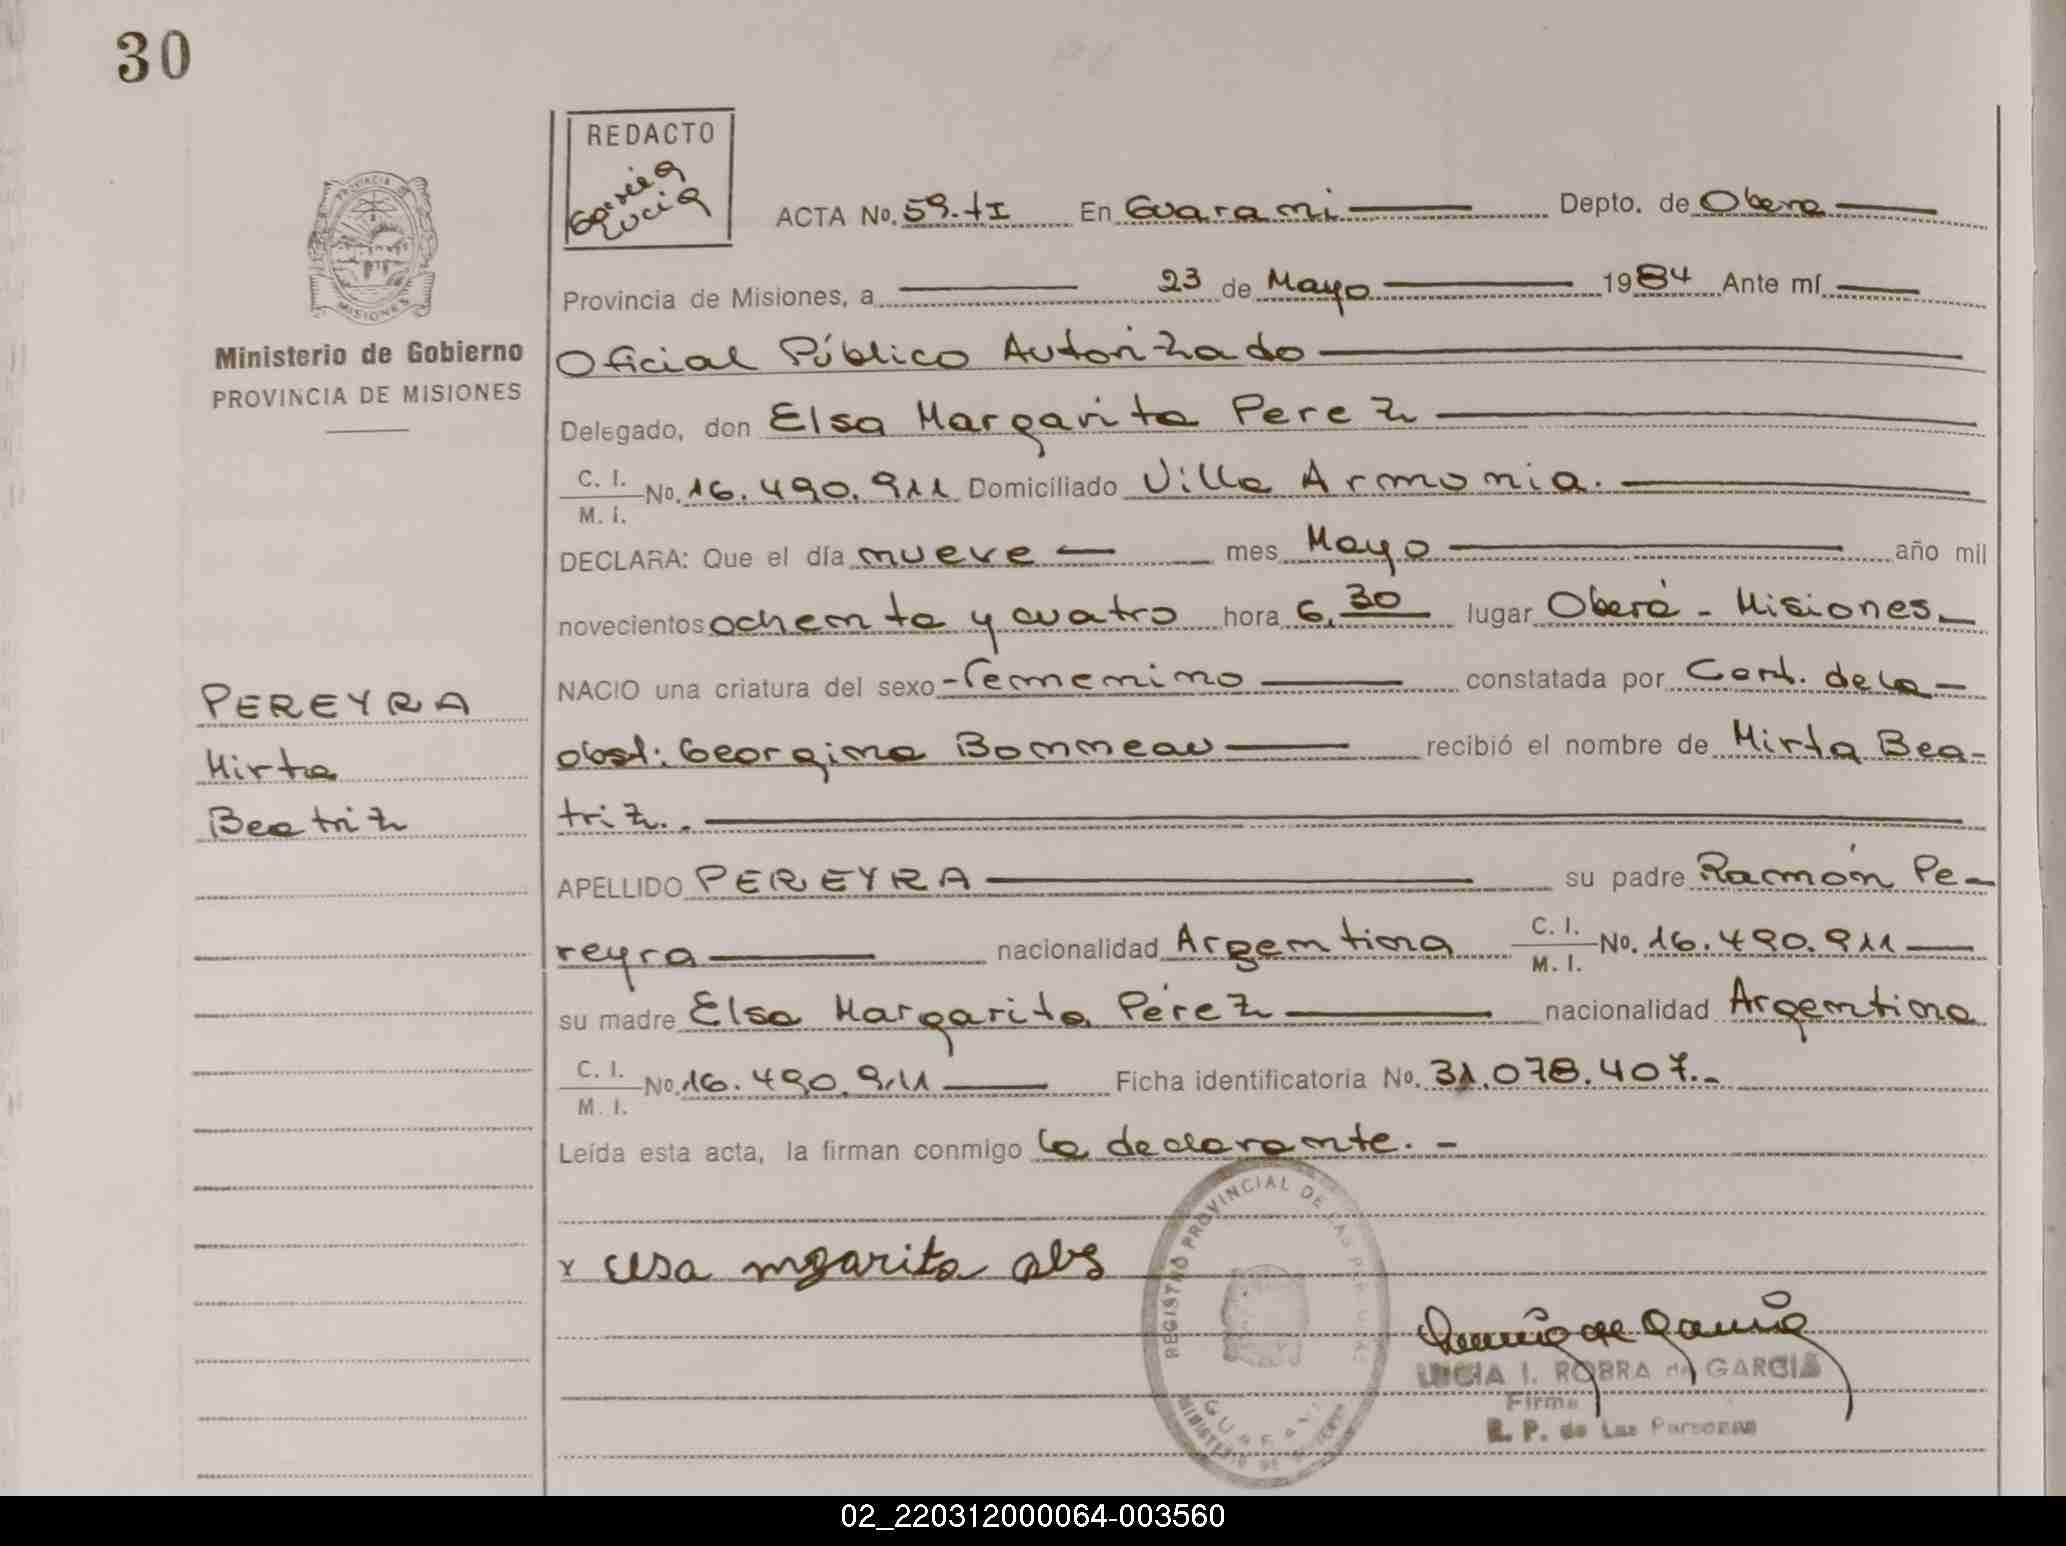 30
REDACTO
García
Lucia
ACTA No. 59.-tI En Guarani Depto. de Obera
Provincia de Misiones, a 23 de Mayo 1984 Ante mí
PROVINCIA DE
MISIONES
Ministerio de Gobierno
PROVINCIA DE MISIONES
Oficial Público Autorizado
Delegado, don Elsa Margarita Perez
C. I.
M. I. No. 16.490.911 Domiciliado Villa Armonia.
DECLARA: Que el día nueve mes Mayo año mil
novecientos ochenta y cuatro hora 6,30 lugar Oberá - Misiones
NACIO una criatura del sexo Femenino constatada por Cert. de la
obst: Georgina Bonneau recibió el nombre de Mirta Bea-
triz..
PEREYRA
Mirta
Beatriz
APELLIDO PEREYRA su padre Ramón Pe-
reyra nacionalidad Argentina C. I.
M. I. No. 16.490.911
su madre Elsa Margarita Pérez nacionalidad Argentina
C. I.
M. I. No. 16.490.911 Ficha identificatoria No. 31.078.407.-
Leída esta acta, la firman conmigo la declarante. -
REGISTRO PROVINCIAL DE LAS PERSONAS
MINISTERIO DE GOBIERNO
LUCIA I. ROBRA de GARCIA
Firma
R. P. de Las Personas
02_220312000064-003560